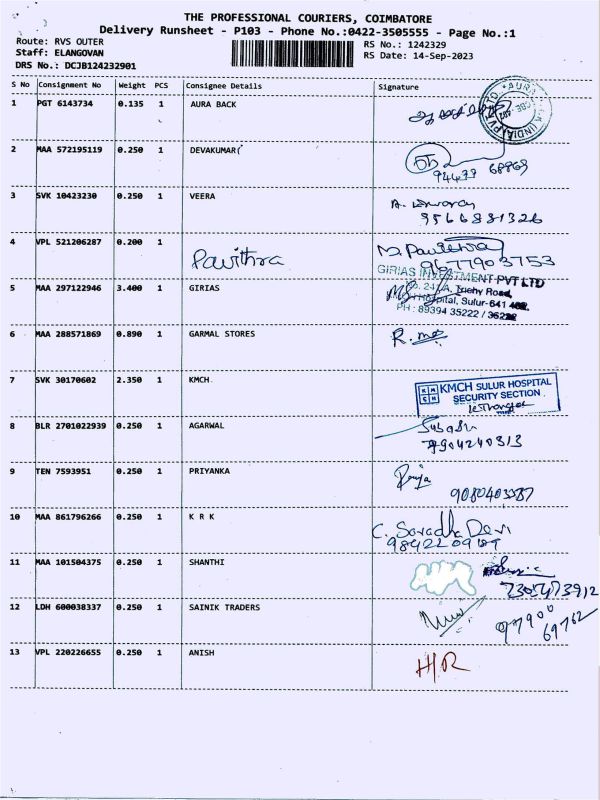 THE PROFESSIONAL COURIERS, COIMBATORE
Delivery Runsheet - P103 - Phone No.:0422-3505555 - Page No.:1
Route: RVS OUTER
RS No.: 1242329
Staff: ELANGOVAN
RS Date: 14-Sep-2023
DRS No.: DCJB124232901
S No Consignment No Weight PCS Consignee Details Signature
1 PGT 6143734 0.135 1 AURA BACK
2 MAA 572195119 0.250 1 DEVAKUMAR(
94433 68969
3 SVK 10423230 0.250 1 VEERA
9566881326
4 VPL 521206287 0.200 1
Pavithra
9677903753
GIRIAS INVESTMENT PVT LTD
5 MAA 297122946 3.400 1 GIRIAS
No. 241/A, Trichy Road,
Hospital, Sulur-641 402.
PH : 89394 35222 / 36222
6 MAA 288571869 0.890 1 GARMAL STORES
7 SVK 30170602 2.350 1 KMCH
KMCH SULUR HOSPITAL
SECURITY SECTION
8 BLR 2701022939 0.250 1 AGARWAL
9904240313
9 TEN 7593951 0.250 1 PRIYANKA
10 MAA 861796266 0.250 1 K R K
C. Saradha Devi
11 MAA 101504375 0.250 1 SHANTHI
7305473912
12 LDH 600038337 0.250 1 SAINIK TRADERS
97900
69762
13 VPL 220226655 0.250 1 ANISH
H/R